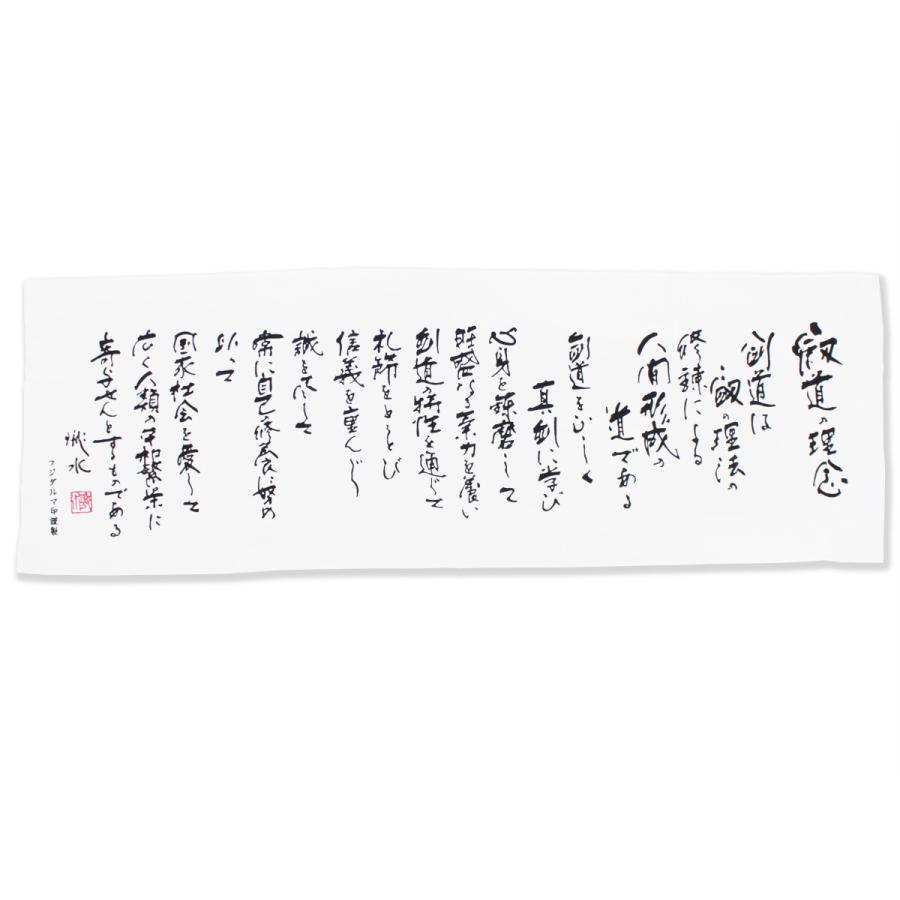 剣道の理念
剣道は
剣の理法の
修錬による
人間形成の
道である
剣道を正しく
真剣に学び
心身を錬磨して
旺盛なる気力を養い
剣道の特性を通じて
礼節をとうとび
信義を重んじ
誠を尽して
常に自己の修養に努め
以って
国家社会を愛して
広く人類の平和繁栄に
寄与せんとするものである
フジダルマ印謹製